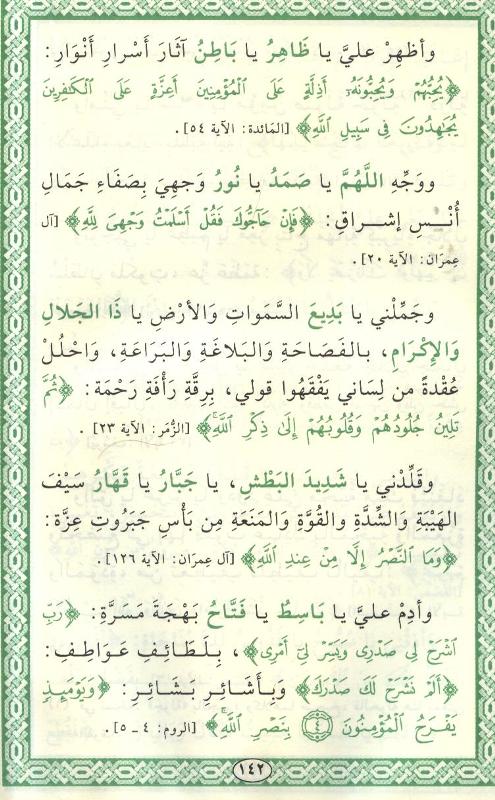 وأظهِرْ عليَّ يا ظَاهِرُ يا بَاطِنُ آثَارَ أَسْرارِ أَنْوَارِ:
﴿يُحِبُّهُمْ وَيُحِبُّونَهُۥٓ أَذِلَّةٍ عَلَى الْمُؤْمِنِينَ أَعِزَّةٍ عَلَى الْكَٰفِرِينَ
يُجَٰهِدُونَ فِى سَبِيلِ اللَّهِ﴾ [المَائدة: الآية ٥٤].
ووَجِّهِ اللَّهُمَّ يا صَمَدُ يا نُورُ وَجهِيَ بِصَفَاءِ جَمَالِ
أُنْسِ إشراقِ: ﴿فَإِنْ حَاجُّوكَ فَقُلْ أَسْلَمْتُ وَجْهِىَ لِلَّهِ﴾ [آل
عِمرَان: الآية ٢٠].
وجَمِّلْني يا بَدِيعَ السَّمَواتِ وَالأَرْضِ يا ذَا الجَلالِ
وَالإِكْرَامِ، بالفَصَاحَةِ وَالبَلاغَةِ وَالبَرَاعَةِ، وَاحْلُلْ
عُقْدةً من لِساني يَفْقَهُوا قولي، بِرِقَّةِ رَأْفَةِ رَحْمَة: ﴿ثُمَّ
تَلِينُ جُلُودُهُمْ وَقُلُوبُهُمْ إِلَىٰ ذِكْرِ اللَّهِ﴾ [الزُّمَر: الآية ٢٣].
وقَلِّدْني يا شَدِيدَ البَطْشِ، يا جَبَّارُ يا قَهَّارُ سَيْفَ
الهَيْبَةِ وَالشِّدَّةِ والقُوَّةِ وَالمَنَعَةِ مِن بَأْسِ جَبَروتِ عِزَّة:
﴿وَمَا النَّصْرُ إِلَّا مِنْ عِندِ اللَّهِ﴾ [آل عِمرَان: الآية ١٢٦].
وأدِمْ عليَّ يا بَاسِطُ يا فَتَّاحُ بَهْجَةَ مَسَرَّةِ: ﴿رَبِّ
اشْرَحْ لِى صَدْرِى وَيَسِّرْ لِىٓ أَمْرِى﴾، بِلَطَائِفِ عَوَاطِفِ:
﴿أَلَمْ نَشْرَحْ لَكَ صَدْرَكَ﴾ وَبِأَشَائِرِ بَشَائِرِ: ﴿وَيَوْمَئِذٍ
يَفْرَحُ الْمُؤْمِنُونَ ۝٤ بِنَصْرِ اللَّهِ﴾ [الروم: ٤ ـ ٥].
١٤٢